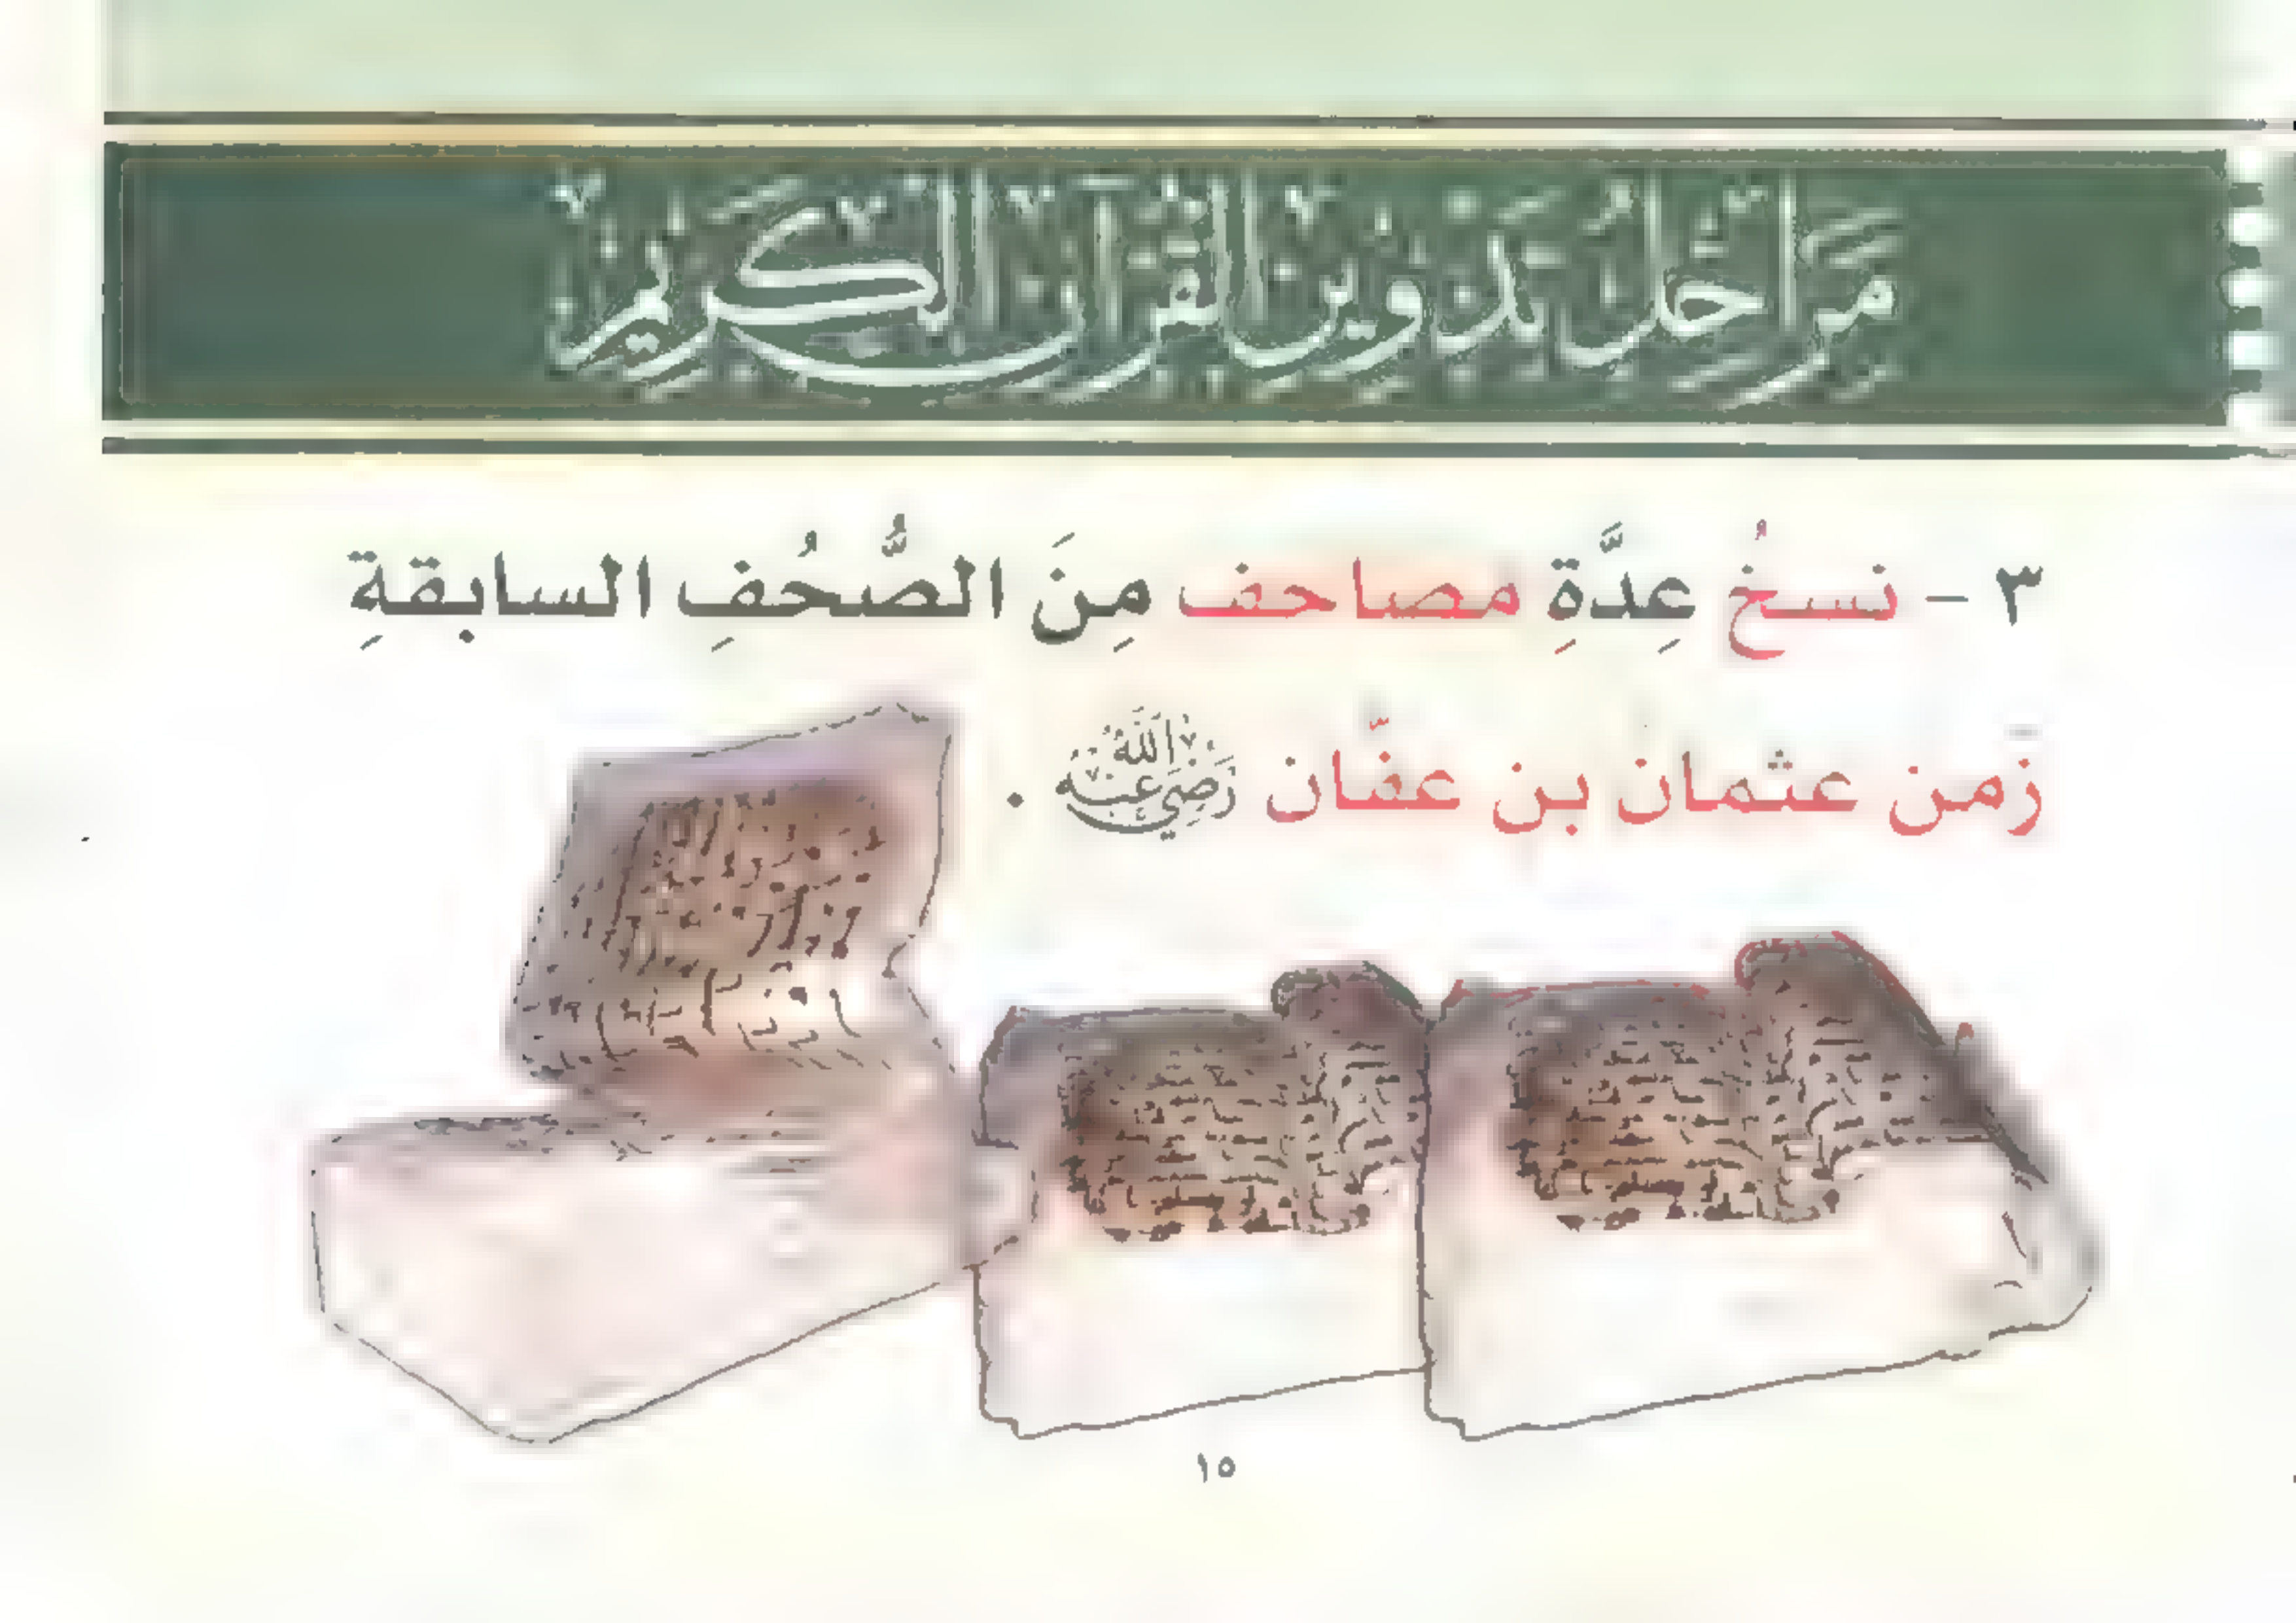 مَرَاحِلُ تَدْوِينِ الْقُرْآنِ الْكَرِيمِ
٣ - نسخُ عِدَّةِ مصاحف مِنَ الصُّحُفِ السابقةِ
زَمن عثمان بن عفّان رَضِيَ اللهُ عَنْهُ .
١٥